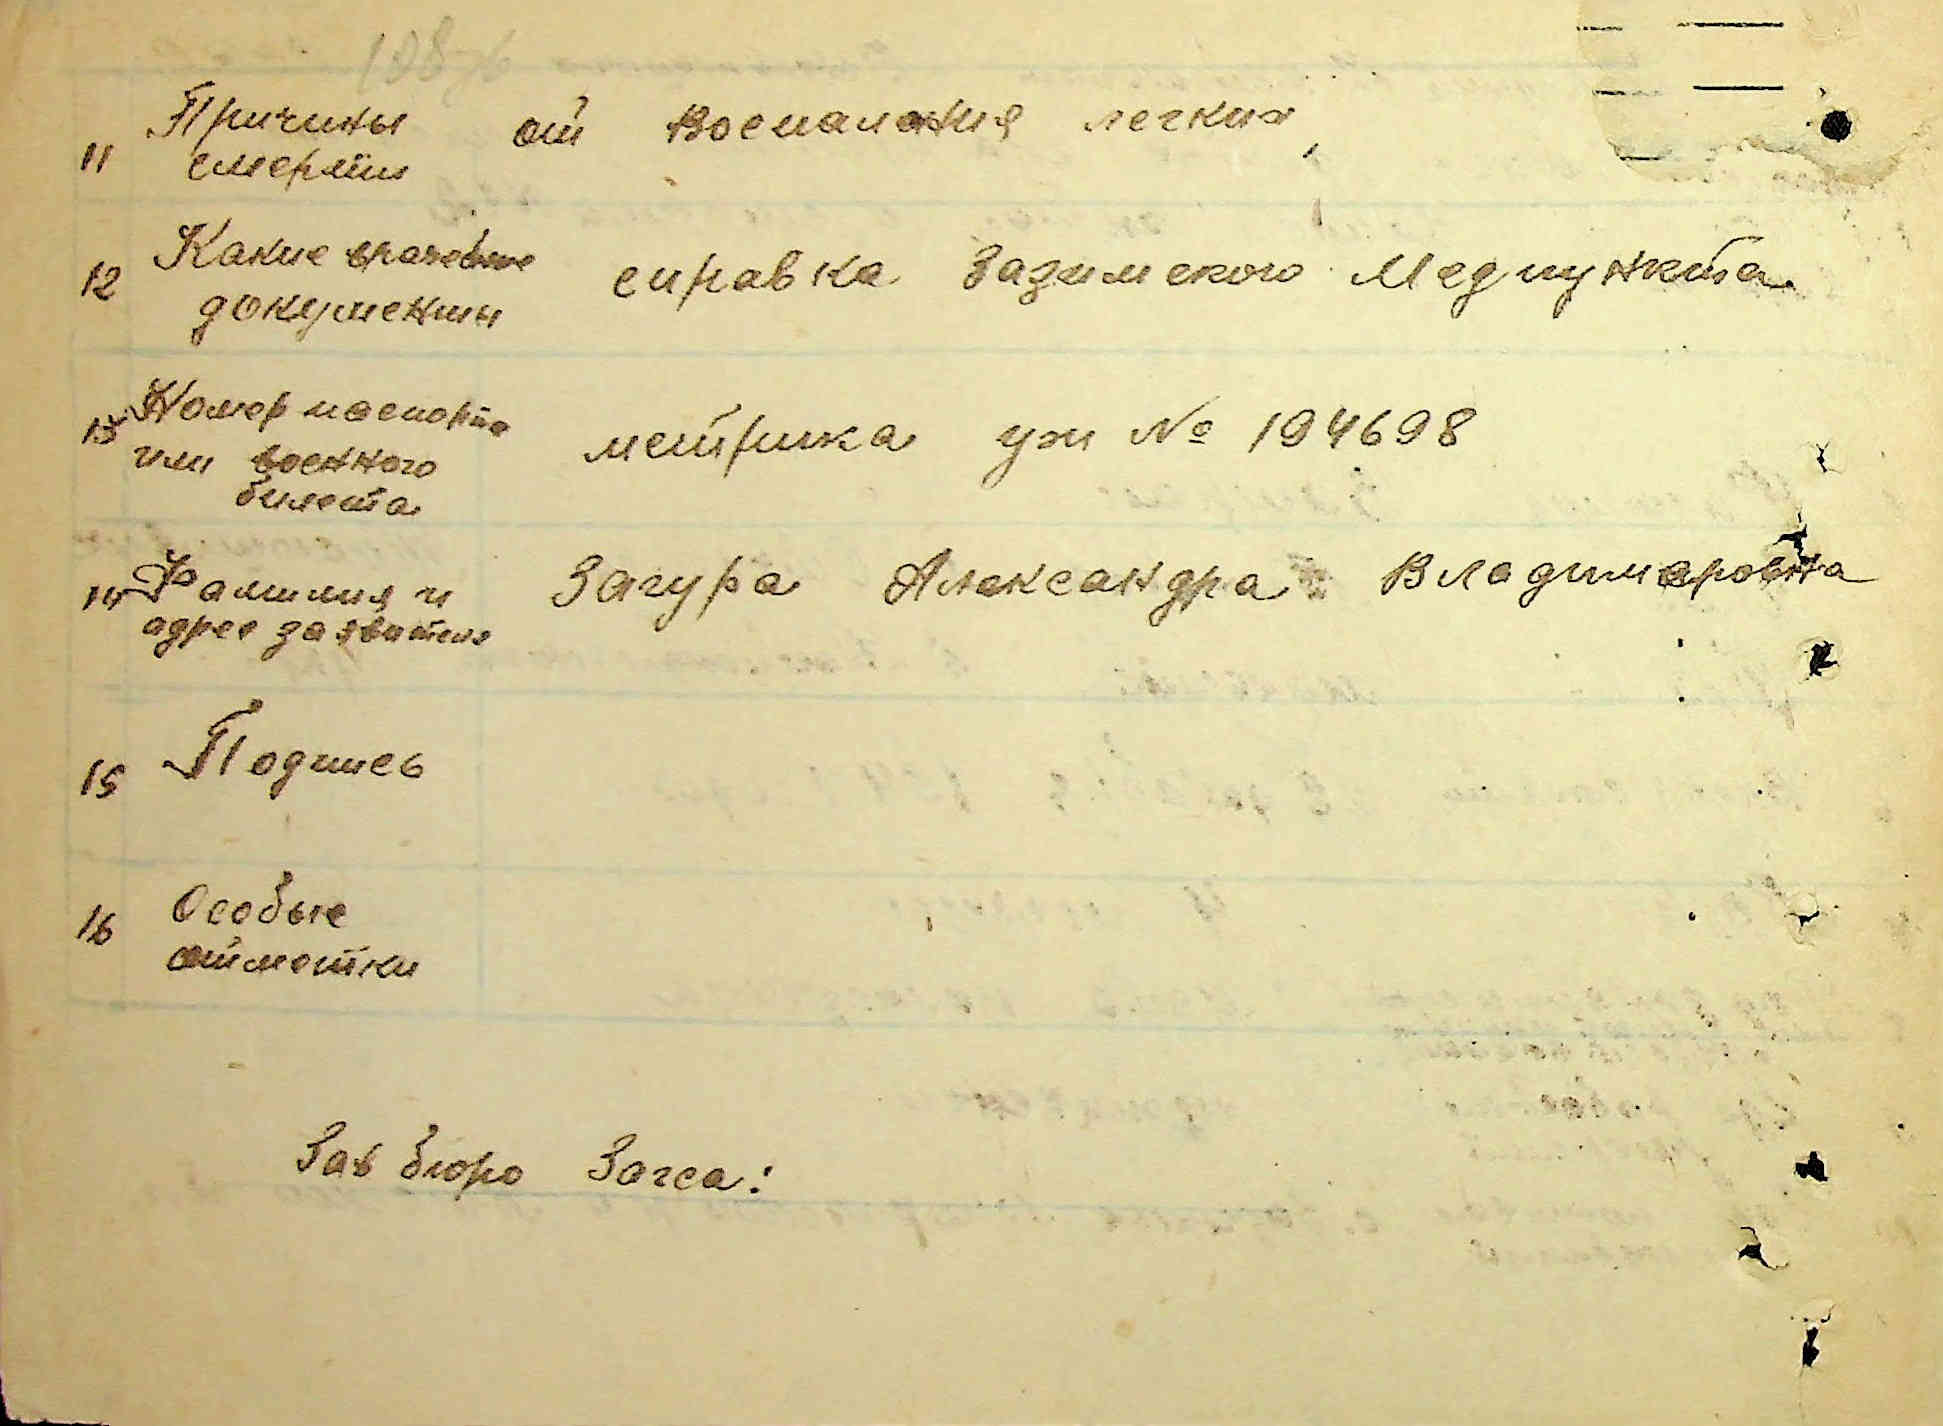 11 Причины от Воспаления легких,
смерти
12 Какие врачебные справка Зазимского Медпункта
документы
13 Номер паспорта метрика уж № 194698
или военного
билета
14 Фамилия и Загура Александра Владимировна
адрес заявителя
15 Подпись
16 Особые
отметки
Зав бюро Загса: